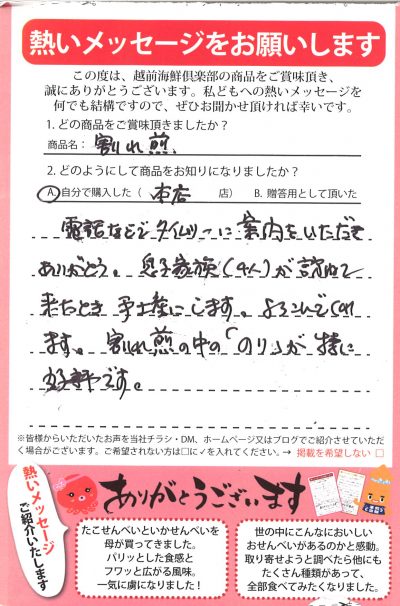 熱いメッセージをお願いします
この度は、越前海鮮倶楽部の商品をご賞味頂き、
誠にありがとうございます。私どもへの熱いメッセージを
何でも結構ですので、ぜひお聞かせ頂ければ幸いです。
1. どの商品をご賞味頂きましたか？
商品名： 割れ煎
2. どのようにして商品をお知りになりましたか？
A. 自分で購入した（ 本店 店） B. 贈答用として頂いた
電話などでタイムリーに案内をいただき
ありがとう。息子家族（4人）が訪ねて
来たとき 手土産にします。よろこんでくれ
ます。割れ煎の中の「のり」が特に
好評です。
※皆様からいただいたお声を当社チラシ・DM、ホームページ又はブログでご紹介させていただ
く場合がございます。ご希望されない方は□に✓を入れてください。→ 掲載を希望しない □
熱いメッセージ
ご紹介いたします
ありがとうございます
たこせんべいといかせんべいを
母が買ってきました。
パリッとした食感と
フワッと広がる風味。
一気に虜になりました！
世の中にこんなにおいしい
おせんべいがあるのかと感動。
取り寄せようと調べたら他にも
たくさん種類があって、
全部食べてみたくなりました。